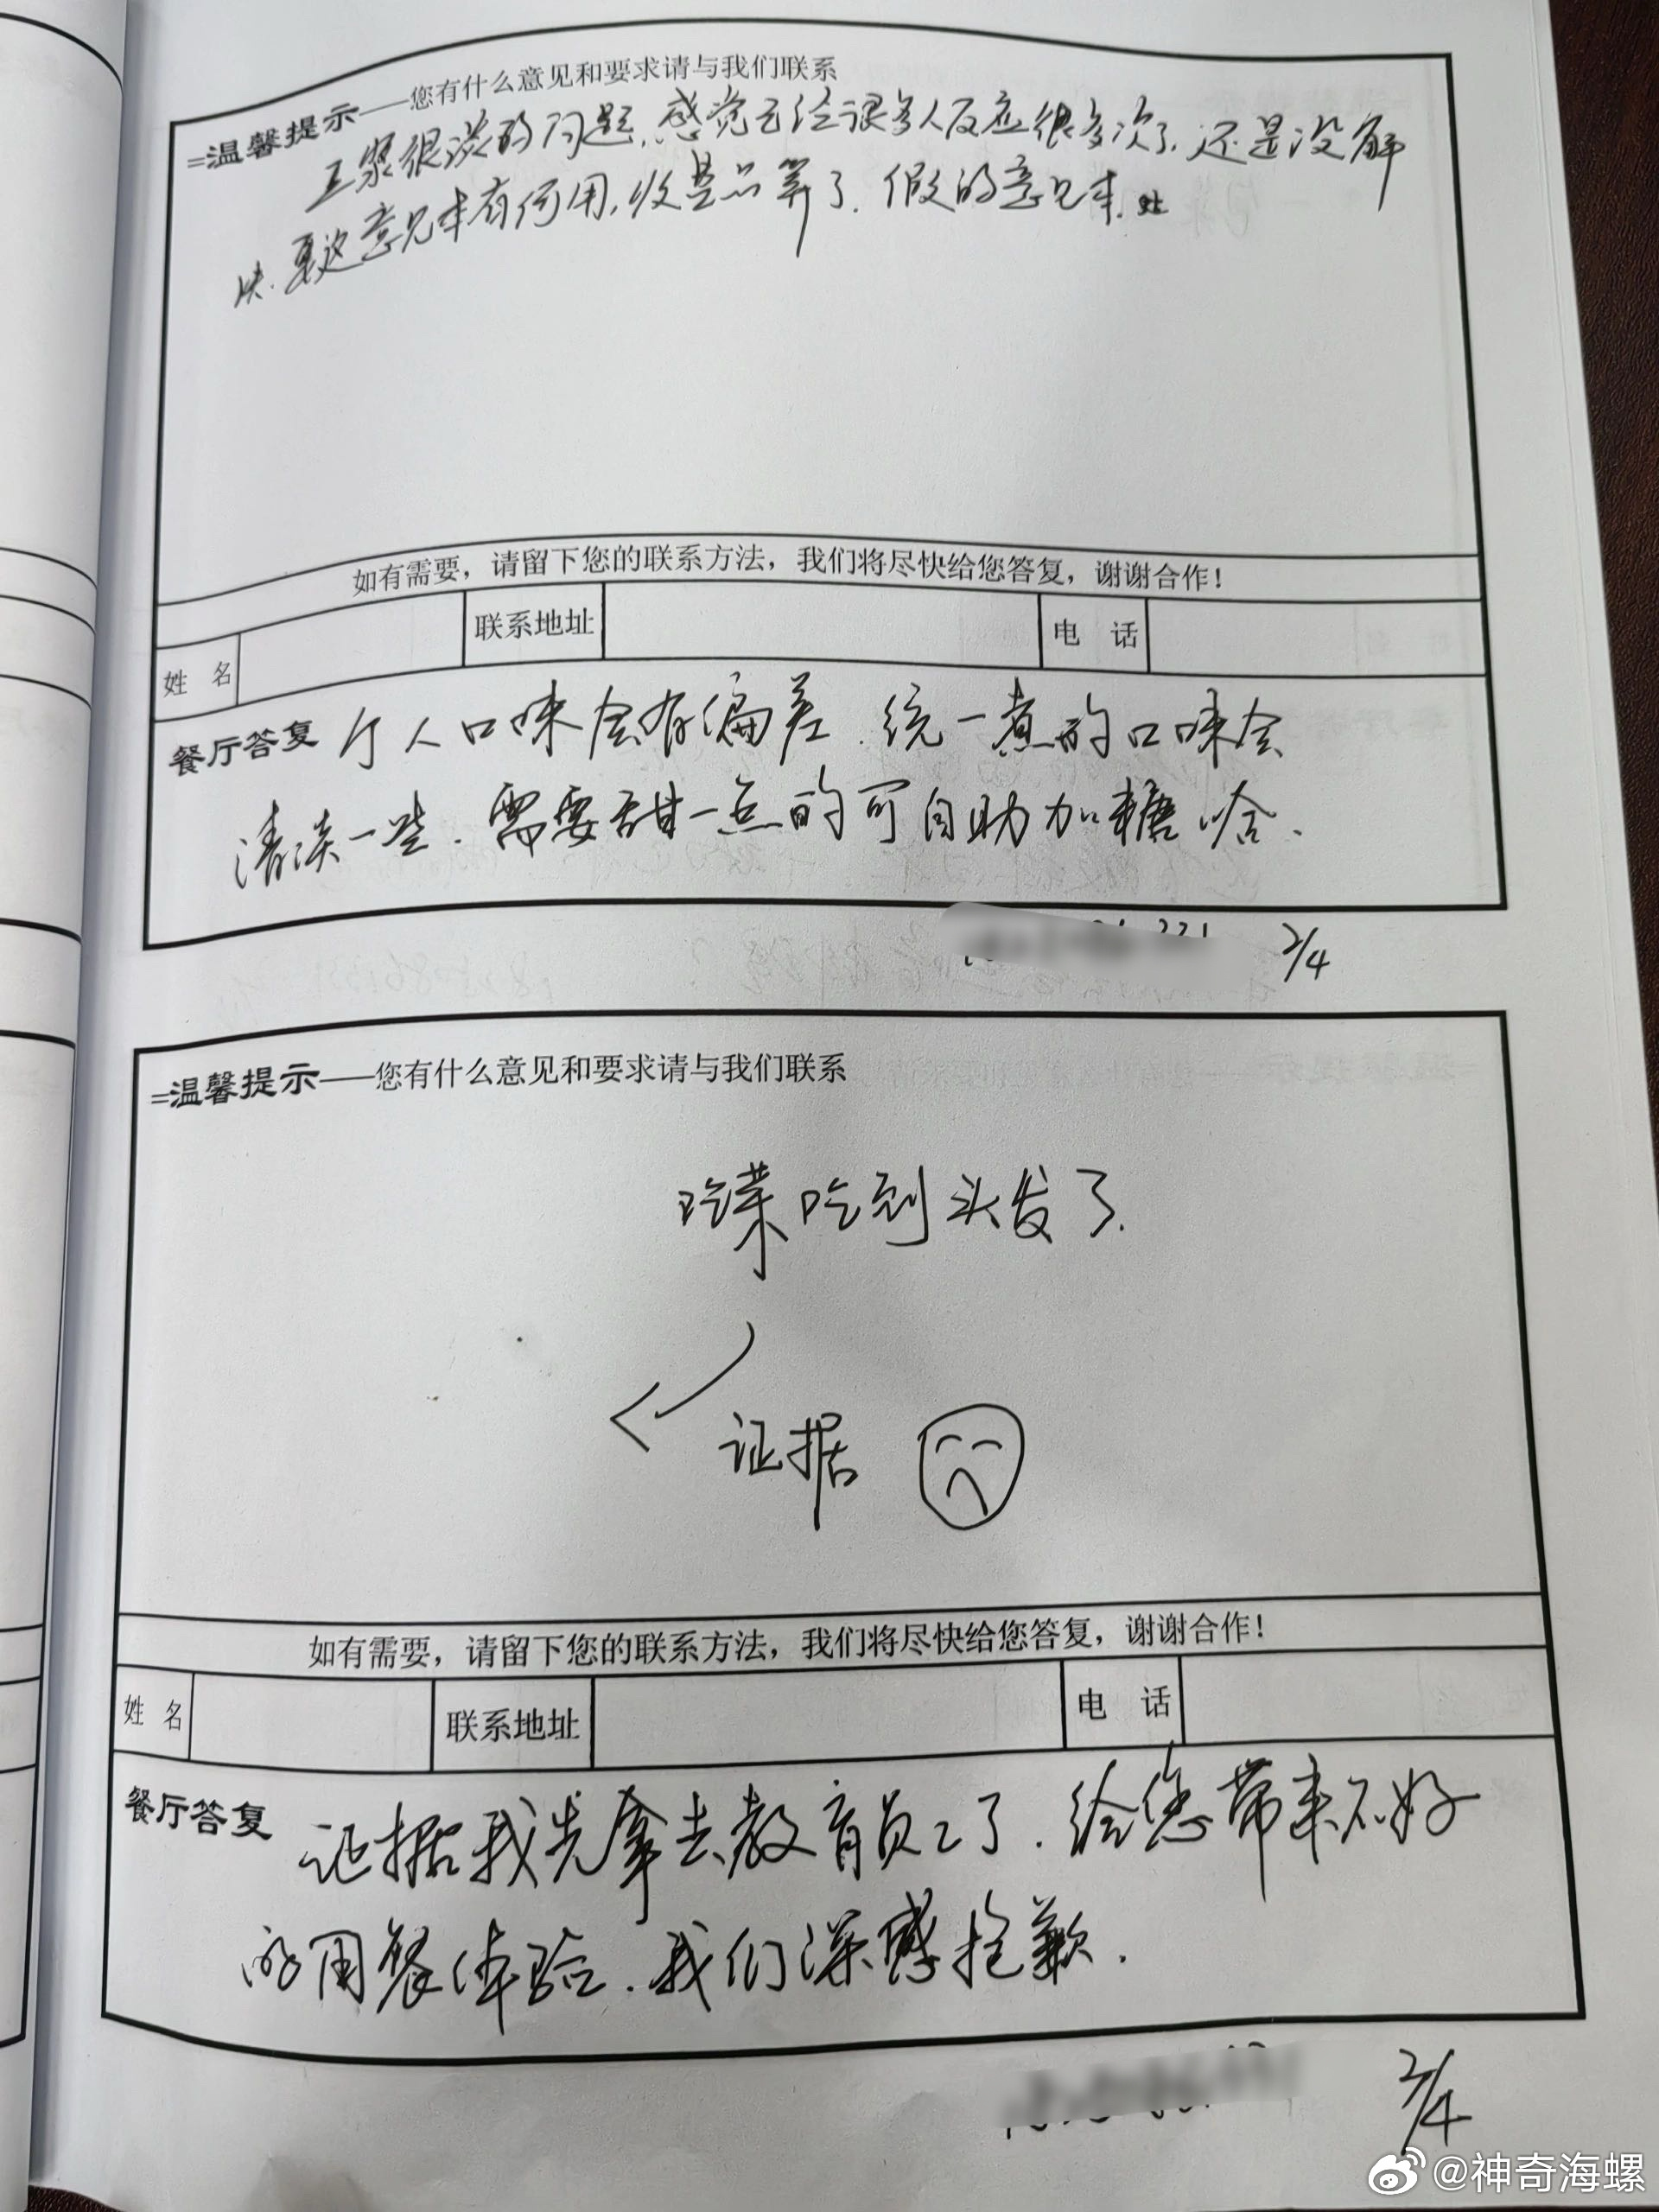 =温馨提示——您有什么意见和要求请与我们联系
豆浆很淡的问题,感觉已经很多人反应很多次了,还是没解
决.要这意见本有何用,收是品算了.假的意见本.
如有需要,请留下您的联系方法,我们将尽快给您答复,谢谢合作!
姓 名 联系地址 电 话
餐厅答复 个人口味会有偏差.统一煮的口味会
清淡一些.需要甜一点的可自助加糖哈.
2/4
=温馨提示——您有什么意见和要求请与我们联系
吃菜吃到头发了.
证据
如有需要,请留下您的联系方法,我们将尽快给您答复,谢谢合作!
姓 名 联系地址 电 话
餐厅答复 证据我先拿去教育员工了.给您带来不好
的用餐体验.我们深感抱歉.
2/4
@神奇海螺